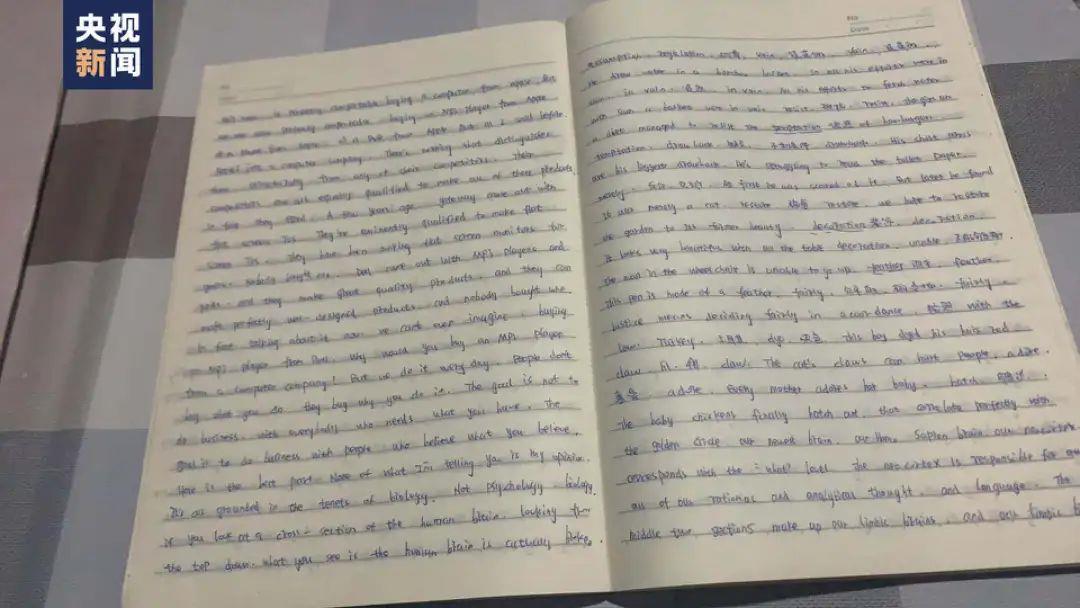 央视
新闻
No
Date
comfortable buying a computer from Apple. But
we are also perfectly comfortable buying an MP3 player from Apple
or a phone from Apple. or a DVR from Apple. But as I said before
Apple's just a computer company. There's nothing that distinguishes
them structurally from any of their competitors. Their
competitors are all equally qualified to make all of these products.
in fact they tried. A few years ago gateway came out with
flat screen TVs. They're eminently qualified to make flat
screen TVs. They have been making flat screen monitors for
years. nobody bought one. Dell came out with MP3 players and
PDAs. and they make great quality products. and they can
make perfectly well designed products. and nobody bought one.
In fact talking about it now we can't even imagine buying
an MP3 player from Dell. Why would you buy an MP3 player
from a computer company! But we do it every day. People don't
buy what you do they buy why you do it. The goal is not to
do business with everybody who needs what you have. The
goal is to do business with people who believe what you believe.
Here is the best part. None of what I'm telling you is my opinion.
It's all grounded in the tenets of biology. Not psychology. biology.
if you look at a cross-section of the human brain. looking from
the top down. what you see is the human brain is actually broken
vain
he draw water in a bamboo basket. so all his efforts were in
vain. in vain. in vain. All his efforts to fetch water
with such a basket were in vain. resist. resist. the girl on
a diet managed to resist the temptation of hamburgers.
temptation. drawback drawback. His short arms
are his biggest drawback. He's struggling to reach the toilet paper.
merely. At first he was scared of it. But later he found
it was merely a cat. restore restore. we have to restore
the garden to its former beauty. decoration 装饰. decoration.
It looks very beautiful with all the table decorations. unable.
The man in the wheelchair is unable to go up. feather 羽毛. feather.
This pen is made of a feather. fairly. fairly.
Justice means deciding fairly in accordance with the
law. Turkey. 土耳其. dye. 染色. This boy dyed his hair red
claw. 爪. claw. The cat's claws can hurt people. adore.
adore. Every mother adores her baby. hatch 孵化.
The baby chickens finally hatch out. that correlate perfectly with
the golden circle. our newest brain. our Homo Sapien brain. our neocortex
corresponds with the "what" level. The neocortex is responsible for
all of our rational and analytical thought. and language. The
middle two sections make up our limbic brains. and our limbic